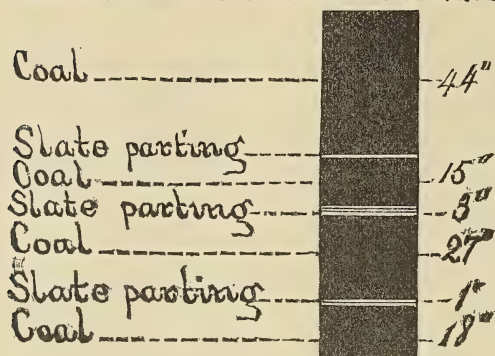 Coal 44"
Slate parting
Coal 15"
Slate parting 3"
Coal 27"
Slate parting 1"
Coal 18"